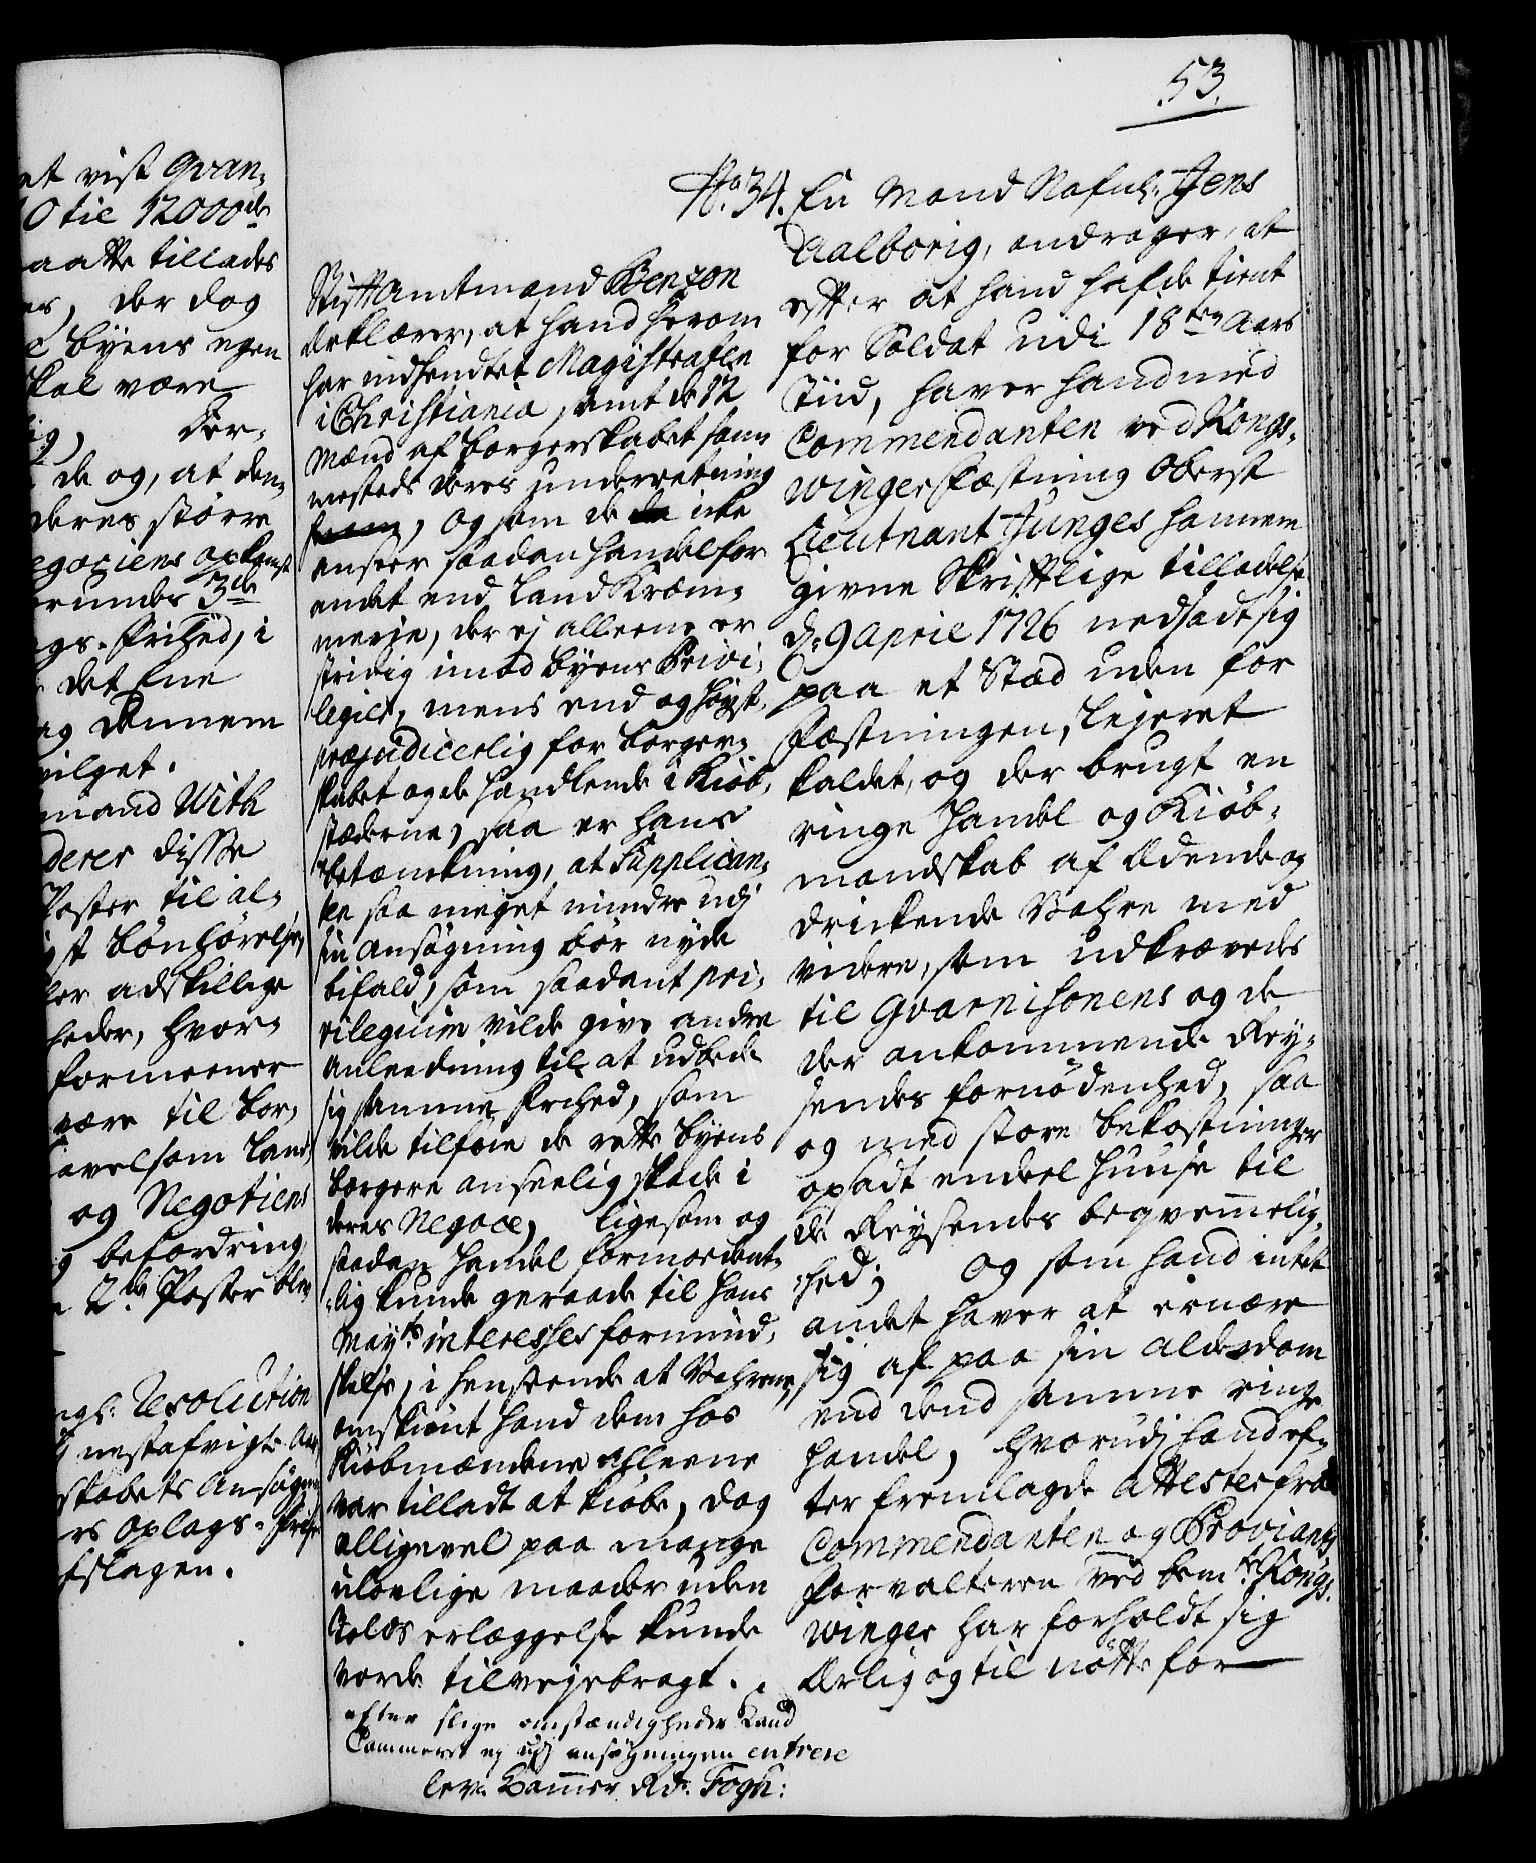 et vist Qvan-
0 til 12000de
aatte tillades
es, der dog
byens egen
skal være
ig, der-
de og, at den
deres större
egociens opkomst
erundes 3de
gs-frihed, i
det Ene
og dennem
vilget.
mand With
derer disse
Poster til al-
gst bönhörelse,
ler adskillige
heder, hvor-
formeener
være til Bor-
saavelsom Land
og Negotiens
g befordring
2de Poster blev
ngl: Resolution
nestafvigte Aar
skabets Ansögn
rs Oplags-frih
fslagen.
53.
No. 34. En Mand Nafnl: Jens
Aalborig, andrager, at
efter at hand hafde tient
for Soldat udi 18ten Aars
Tiid, haver hand med
Commendanten ved Kongs-
winger Fæstning Oberst
Lieutnant Junges hannem
givne Skrifftlige tilladelse
d: 9 April 1726 nedsadt sig
paa et Stæd uden for
Fæstningen, Lejeret
kaldet, og der brugt en
ringe Handel og Kiöb-
mandskab af Ædende og
drickende Vahre med
videre, som udkrævedes
til Gvarnisonens og de
der ankommende Rey-
sendes fornödenhed, saa
og med store bekostninger
opsadt endeel Huuse til
de Reysendes beqvemmelig-
hed; Og som hand intet
andet haver at ernære
sig af paa sin Alderdom
end dend samme ringe
Handel, hvorudj hand ef-
ter fremlagde Attester fra
Commendanten og Proviant
forvalteren ved bemte Kongs-
winger har forholdt sig
Ærlig og til nötte for
Stiftamtmand Benzon
erklærer, at hand herom
har indhendtet Magistraten
i Christiania, samt de 12
Mænd af borgerskabet sam-
mesteds deres underretning
, og som de ikke
anseer saadan Handel for
andet end Land Kræm-
merie, der ej alleene er
stridig imod byens Privi-
legier, mens end og höyst-
præjudicerlig for borger-
skabet og de Handlende i Kiöb-
stæderne, saa er hans
betænkning, at Supplican-
ten saa meget mindre udj
sin Ansögning bör nyde
bifald, som saadant pri-
vilegium vilde give andre
Anleedning til at udbede
sig samme frihed, som
vilde tilföie de rette byens
borgere anseelig skade i
deres Negoce, ligesom og
saadan Handel formodent-
lig kunde geraade til Hans
Mayts interesses formind-
skelse, i henseende at Vahrene,
omskiönt hand dem hos
Kiöbmændene alleene
var tilladt at kiöbe, dog
alligevel paa mange
ulovlige maader uden
Tolds erlæggelse kunde
vorde tilvejebragt.
efter slige omstændigheder kand
Commercet ej udj ansögningen entrere
Lev. Bammer. Rd. Fogh: